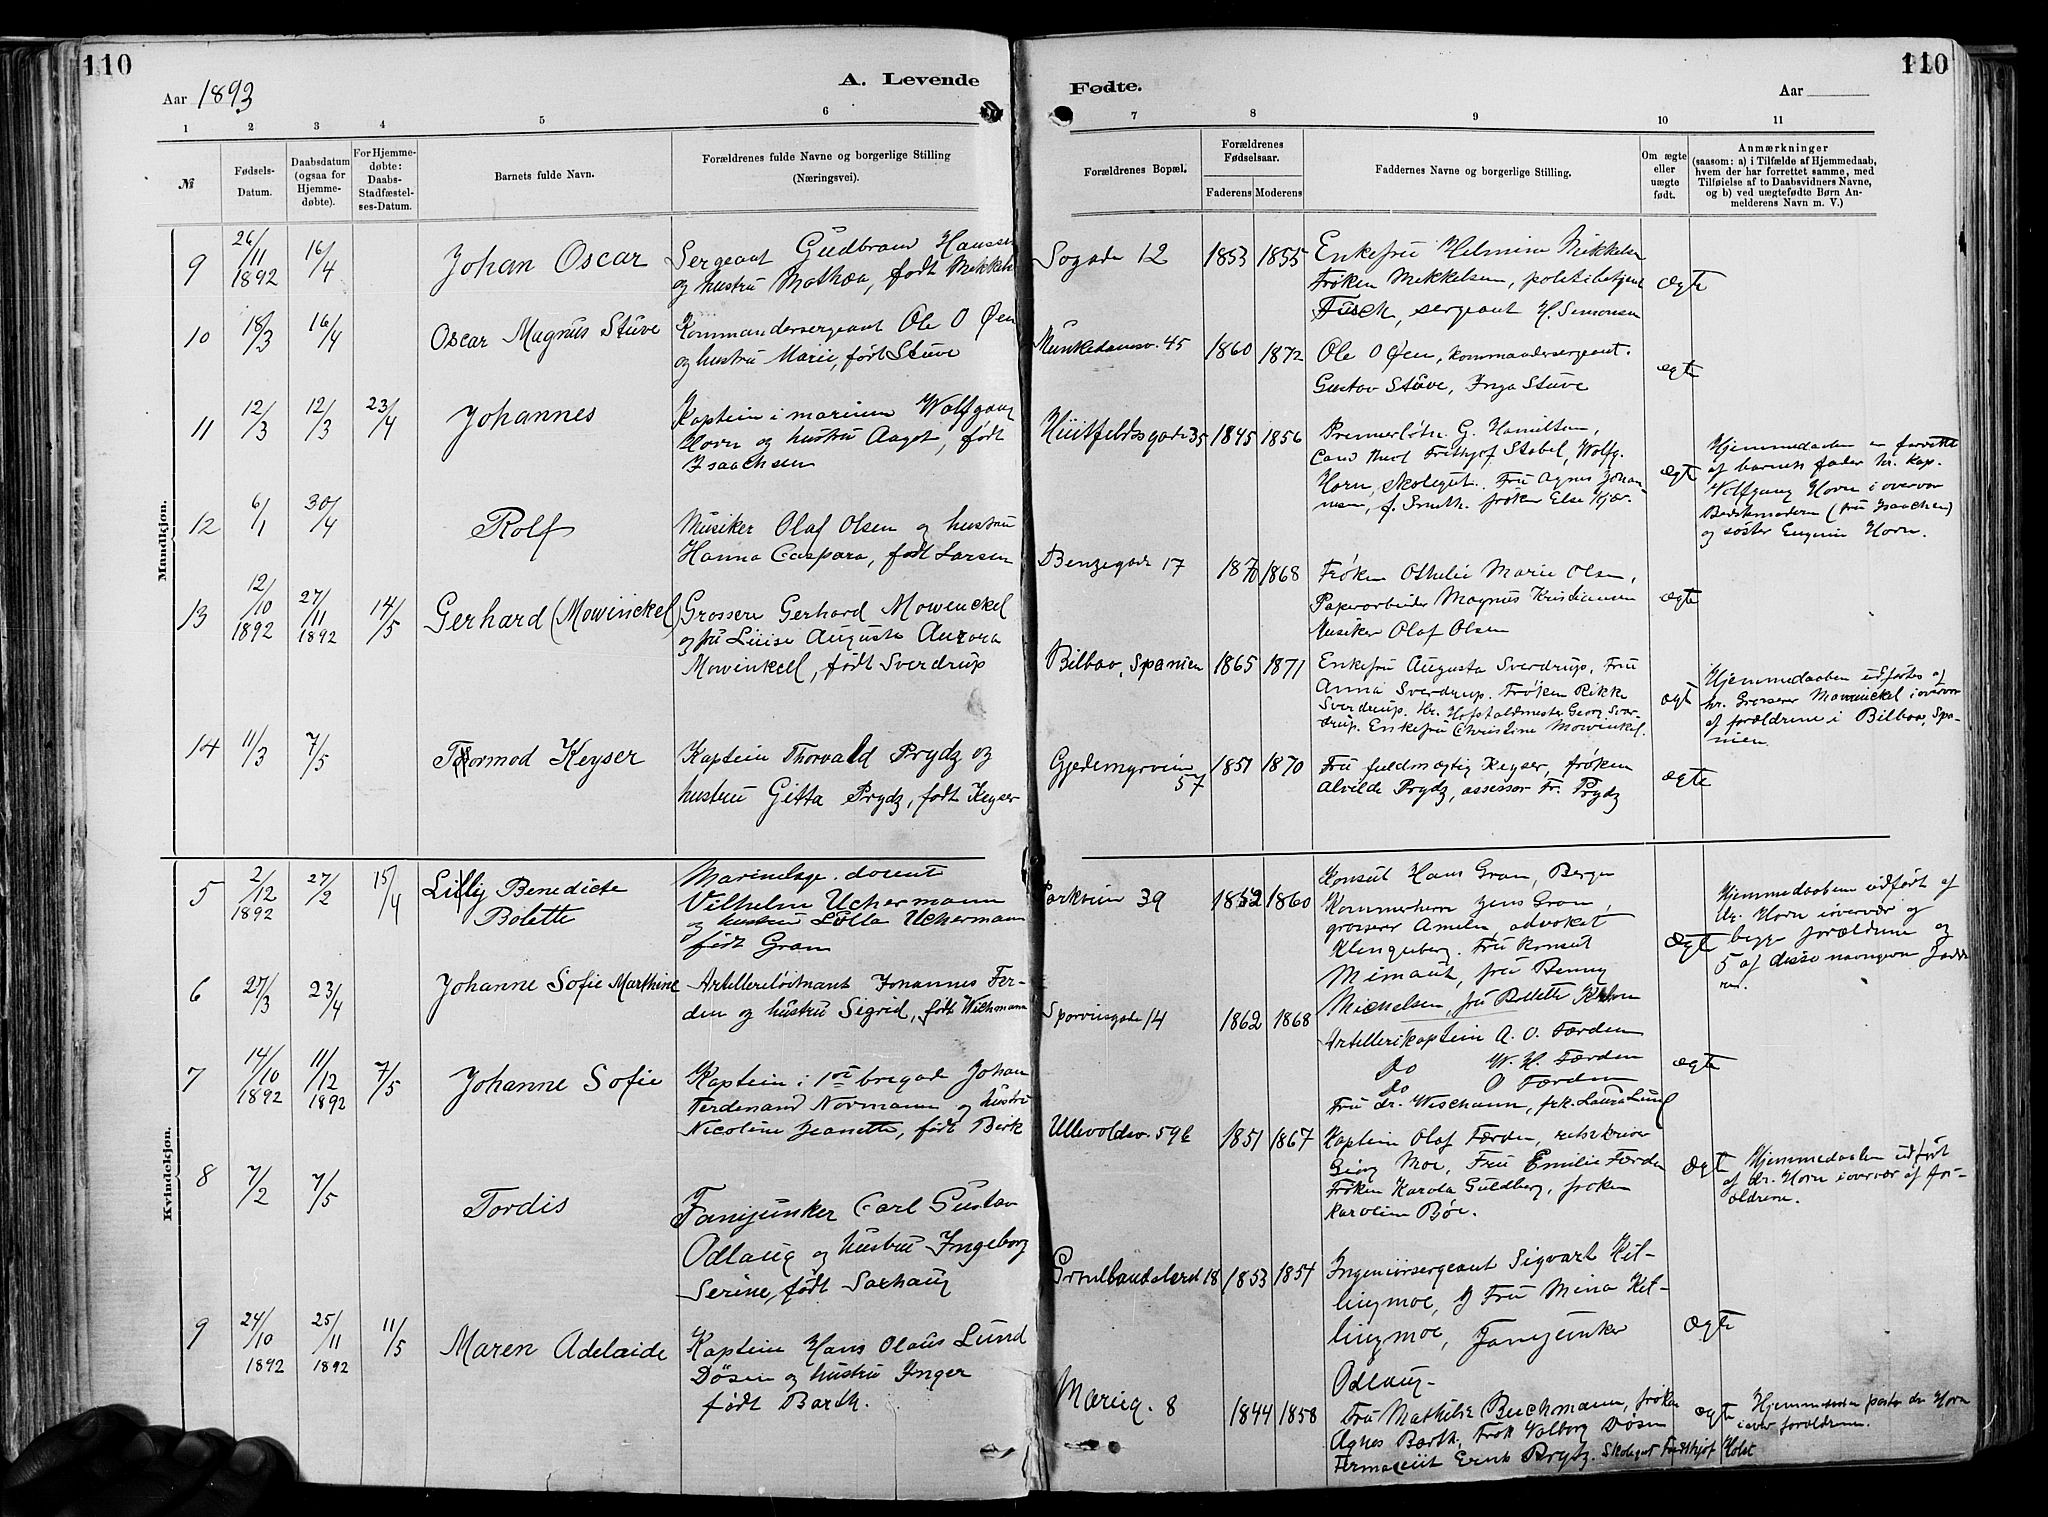 110
110
Aar 1893
A. Levende
Fødte.
Aar
1 2 3 4 5 6 7 8 9 10 11
№
Fødsels-
Datum.
Daabsdatum
(ogsaa for
Hjemme-
døbte).
For Hjemme-
døbte:
Daabs-
Stadfæstel-
ses-Datum.
Barnets fulde Navn.
Forældrenes fulde Navne og borgerlige Stilling
(Næringsvei).
Forældrenes Bopæl.
Forældrenes
Fødselsaar.
Faderens Moderens
Faddernes Navne og borgerlige Stilling.
Om ægte
eller
uægte
født.
Anmærkninger
(saasom: a) i Tilfælde af Hjemmedaab,
hvem der har forrettet samme, med
Tilføielse af to Daabsvidners Navne,
og b) ved uægtefødte Børn An-
melderens Navn m. V.)
Mandkjøn.
9
26/11
1892
16/4
Johan Oscar
Sergeant Gudbrand Hanssen
og hustru Mathea, født Mikkels
Sogade 12
1853 1855
Enkefru Helmine Mikkelsen
Frøken Mikkelsen, politibetjent
Fusch, sergeant H. Simonsen
ægte
10
18/3
16/4
Oscar Magnus Stuve
Kommandersergeant Ole O Øen
og hustru Marie, født Stuve
Munkedamsv. 45
1860 1872
Ole O Øen, kommandersergeant.
Gustav Stuve, Inga Stuve
ægte
11
12/3
12/3
23/4
Johannes
Kaptein i marinen Wolfgang
Horn og hustru Aagot, født
Isaachsen
Huitfeldtsgade 35
1845 1856
Premierløtn. G. Hamilton,
Cand theol Frithjof Stabel, Wolfg.
Horn, skolegut. Fru Agnes Johan-
nsen, f. Smith. frøken Else Kjær.
ægte
Hjemmedaaben er forrettet
af barnets fader hr. kap.
Wolfgang Horn i overvær
Bedstemoderen (fru Isaachsen)
og søster Eugenie Horn.
12
6/1
30/4
Rolf
Musiker Olaf Olsen og hustru
Hanna Caspara, født Larsen
Benzegade 17
1870 1868
Frøken Othelie Marie Olsen,
Papirarbeider Magnus Kristiansen
Musiker Olaf Olsen
ægte
13
12/10
1892
27/11
1892
14/5
Gerhard (Mowinckel)
Grosserer Gerhard Mowinckel
og fru Luise Augusta Aurora
Mowinkell, født Sverdrup
Bilbao, Spanien
1865 1871
Enkefru Augusta Sverdrup, Fru
Anna Sverdrup. Frøken Rikke
Sverdrup. Hr. Hofstaldmester Georg Sver-
drup. Enkefru Christine Mowinkel.
ægte
Hjemmedaaben udførtes af
hr. Grosserer Mowinckel i overvær
af forældrene i Bilbao, Spa-
nien.
14
11/3
7/5
Tormod Keyser
Kaptein Thorvald Prydz og
hustru Gitta Prydz, født Keyser
Gjedemyrveien
57
1851 1870
Fru fuldmægtig Keyser, frøken
Alvilde Prydz, assessor Fr. Prydz
ægte
Kvindekjøn.
5
2/12
1892
27/2
15/4
Lilly Benedicte
Bolette
Marinelæge. docent
Vilhelm Uchermann
og hustru Lolla Uchermann
født Gran
Parkveien 39
1852 1860
Konsul Hans Gran, Bergen
Kammerherre Jens Gran,
grosserer Ameln, advokat
Klingenberg. Fru konsul
Mimaut, fru Benny
Michelsen, fru Bolette Krohn
Ægte
Hjemmedaaben udført af
Hr. Horn i overvær og
begge forældrene og
5 af disse navngivne Fadde-
re.
6
27/3
23/4
Johanne Sofie Marthine
Artilleriløitnant Johannes Fær-
den og hustru Sigrid, født Wichmann
Sporveisgade 14
1862 1868
Artillerikaptein A. O. Færden
Do W. H. Færden
Do O Færden
Fru dr. Wischann, frk. Laura Lund
ægte
7
14/10
1892
11/12
1892
7/5
Johanne Sofie
Kaptein i 1ste brigade Johan
Ferdinand Normann og hustru
Nicoline Jeanette, født Birk
Ullevoldsv. 59b
1851 1867
Kaptein Olaf Færden,
Georg Moe, Fru Emilie Færden
Frøken Karola Guldberg, frøken
Karoline Bøe.
Ægte
Hjemmedaaben udført
af dr. Horn i overvær af for-
ældrene.
8
7/2
7/5
Tordis
Fanejunker Carl Gustav
Odlaug og hustru Ingeborg
Serine, født Saxhaug
1853 1854
Ingeniørsergeant Sigvart Kil-
lingmoe, Fru Mina Kil-
lingmoe, Fanejunker
Odlaug
Ægte
9
24/10
1892
25/11
1892
11/5
Maren Adelaide
Kaptein Hans Olaus Lund
Døsen og hustru Inger
født Barth.
1844 1858
Fru Mathilde Buchmann, frøken
Agnes Barth, Frøk Valborg Døsen
Farmaceut Erik Prydz. Skolegut Fridthjof Holst
ægte
Hjemmedøbt pastor dr Horn
i over forældrene.